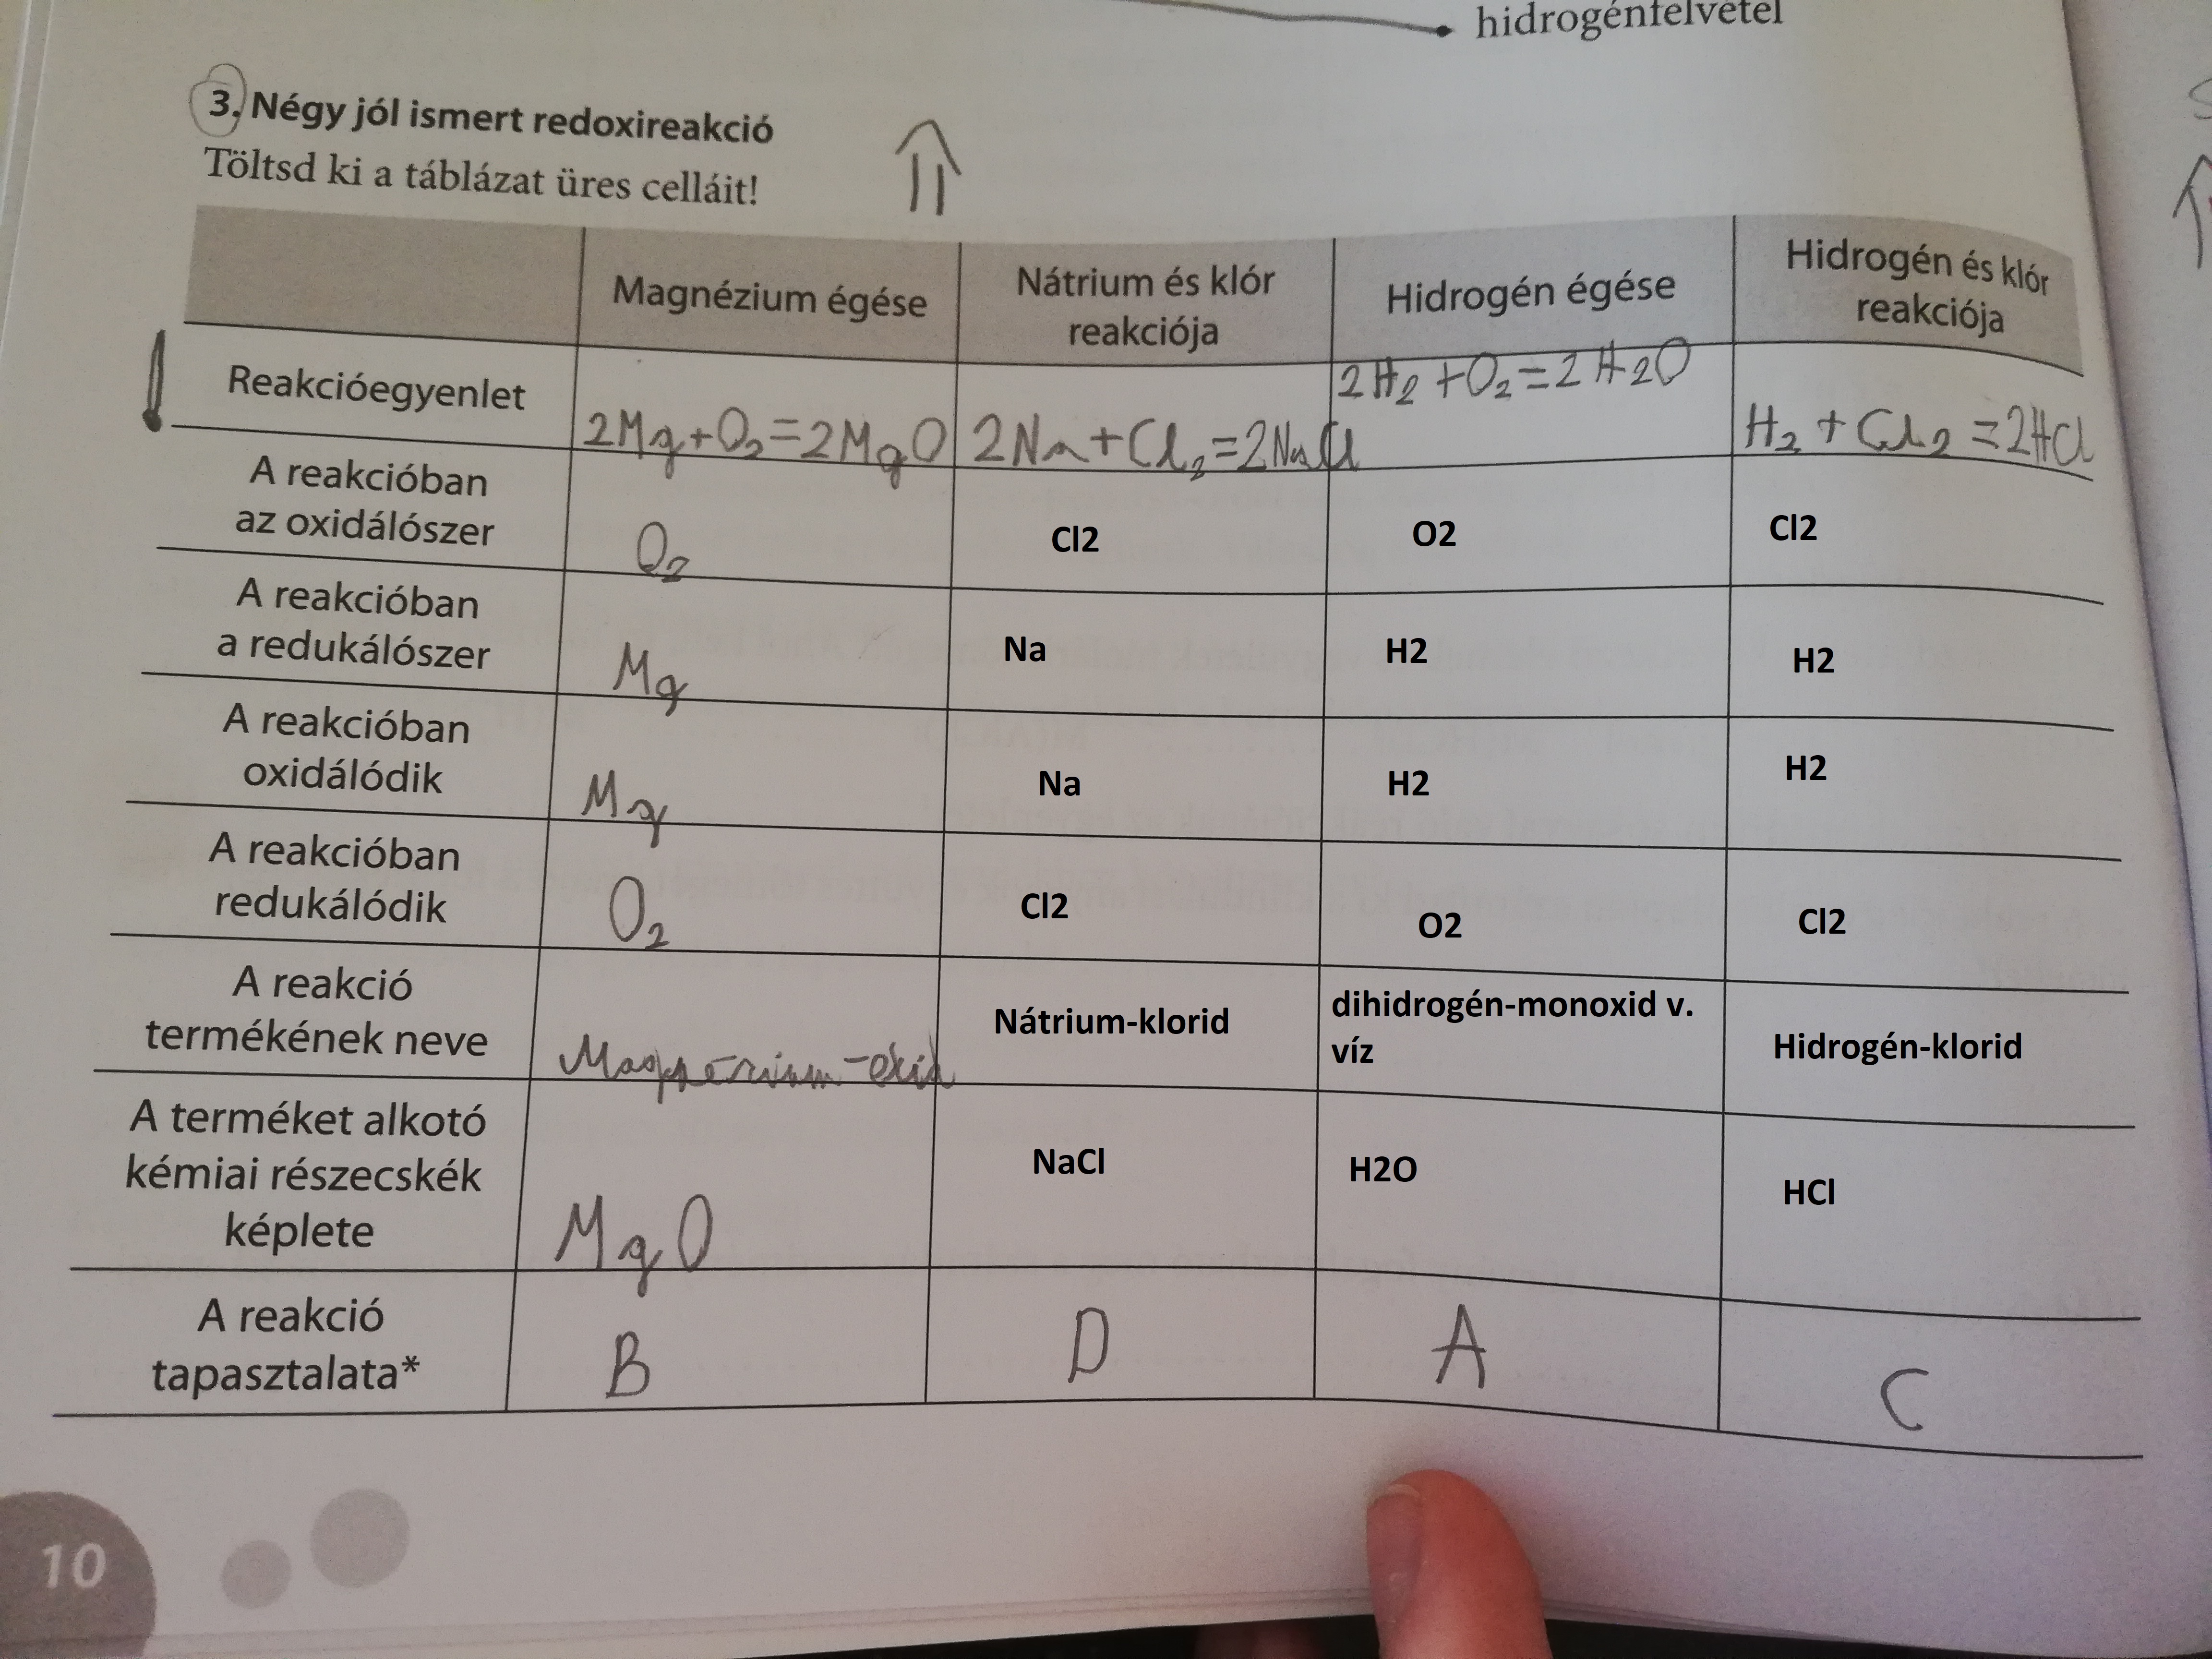 hidrogénfelvétel
3. Négy jól ismert redoxireakció
Töltsd ki a táblázat üres celláit!
Magnézium égése
Nátrium és klór
reakciója
Hidrogén égése
Hidrogén és klór
reakciója
Reakcióegyenlet
2Mg+O2=2MgO
2Na+Cl2=2NaCl
2H2+O2=2H2O
H2+Cl2=2HCl
A reakcióban
az oxidálószer
O2
Cl2
O2
Cl2
A reakcióban
a redukálószer
Mg
Na
H2
H2
A reakcióban
oxidálódik
Mg
Na
H2
H2
A reakcióban
redukálódik
O2
Cl2
O2
Cl2
A reakció
termékének neve
Magnézium-oxid
Nátrium-klorid
dihidrogén-monoxid v.
víz
Hidrogén-klorid
A terméket alkotó
kémiai részecskék
képlete
MgO
NaCl
H2O
HCl
A reakció
tapasztalata*
B
D
A
C
10